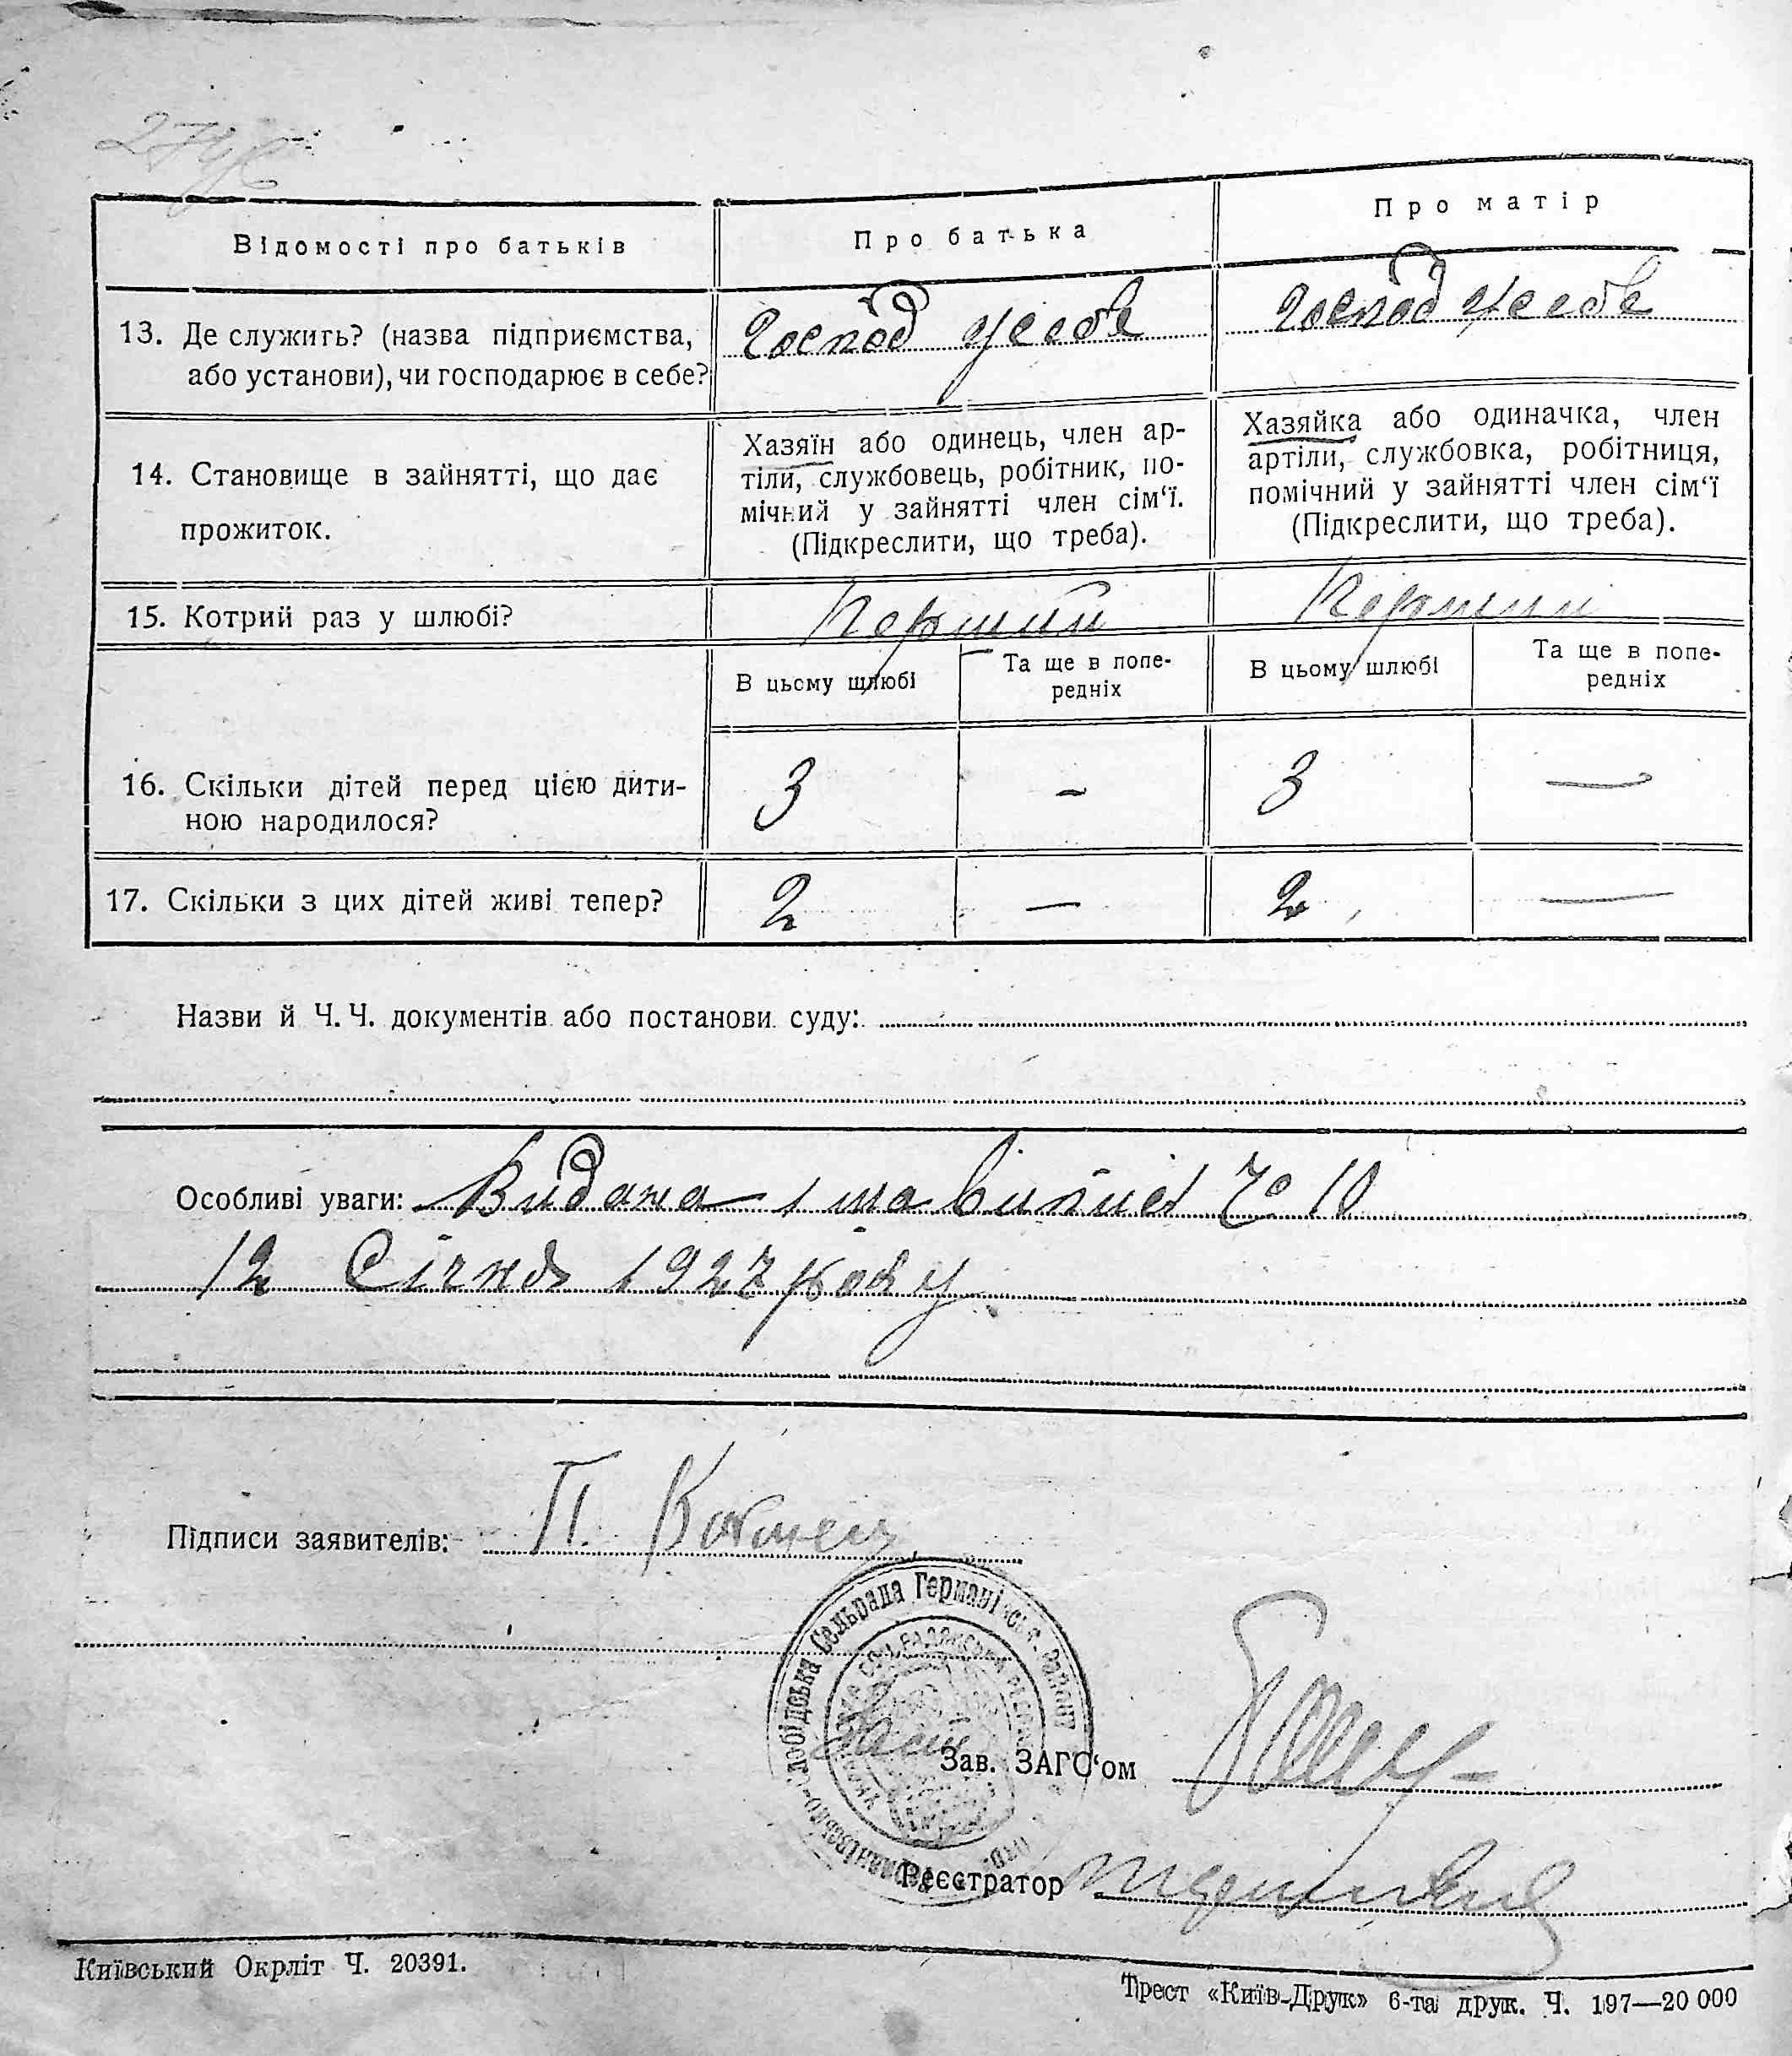 Відомості про батьків
Про батька
Про матір
13. Де служить? (назва підприємства,
або установи), чи господарює в себе?
Господ у себе
Господ у себе
14. Становище в зайнятті, що дає
прожиток.
Хазяїн або одинець, член ар-
тіли, службовець, робітник, по-
мічний у зайнятті член сім‘ї.
(Підкреслити, що треба).
Хазяйка або одиначка, член
артіли, службовка, робітниця,
помічний у зайнятті член сім‘ї
(Підкреслити, що треба).
15. Котрий раз у шлюбі?
Перший
Перший
В цьому шлюбі
Та ще в попе-
редніх
В цьому шлюбі
Та ще в попе-
редніх
16. Скільки дітей перед цією дити-
ною народилося?
3
-
3
—
17. Скільки з цих дітей живі тепер?
2
—
2
—
Назви й Ч. Ч. документів або постанови суду:
Особливі уваги: Видана 1 ша випись № 10
12 Січня 1927 року
Підписи заявителів: П.
Слобідська Сельрада Германівськ. району
Зав. ЗАГС‘ом
Реєстратор
Київський Окрліт Ч. 20391.
Трест «Київ-Друк» 6-та друк. Ч. 197—20 000